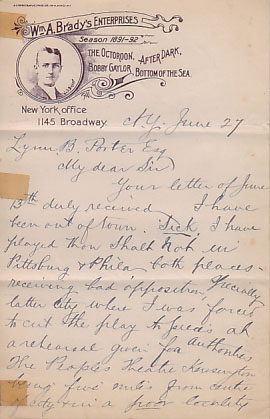 Wm A. Brady's Enterprises
Season 1891-92
The Octoroon, After Dark,
Bobby Gaylor, Bottom of the Sea.
New York office
1145 Broadway.
N.Y. June 27
Lynn B. Porter Esq
My dear Sir
Your letter of June
13th duly received I have
been out of town. I have
played Thou Shalt Not in
Pittsburg & Phila both places
receiving bad opposition, Specially
latter city where I was forced
to cut the play to pieces at
a rehearsal given for Authorities
The Peoples Theatre Kensington
being five miles from centre
of city in a poor locality